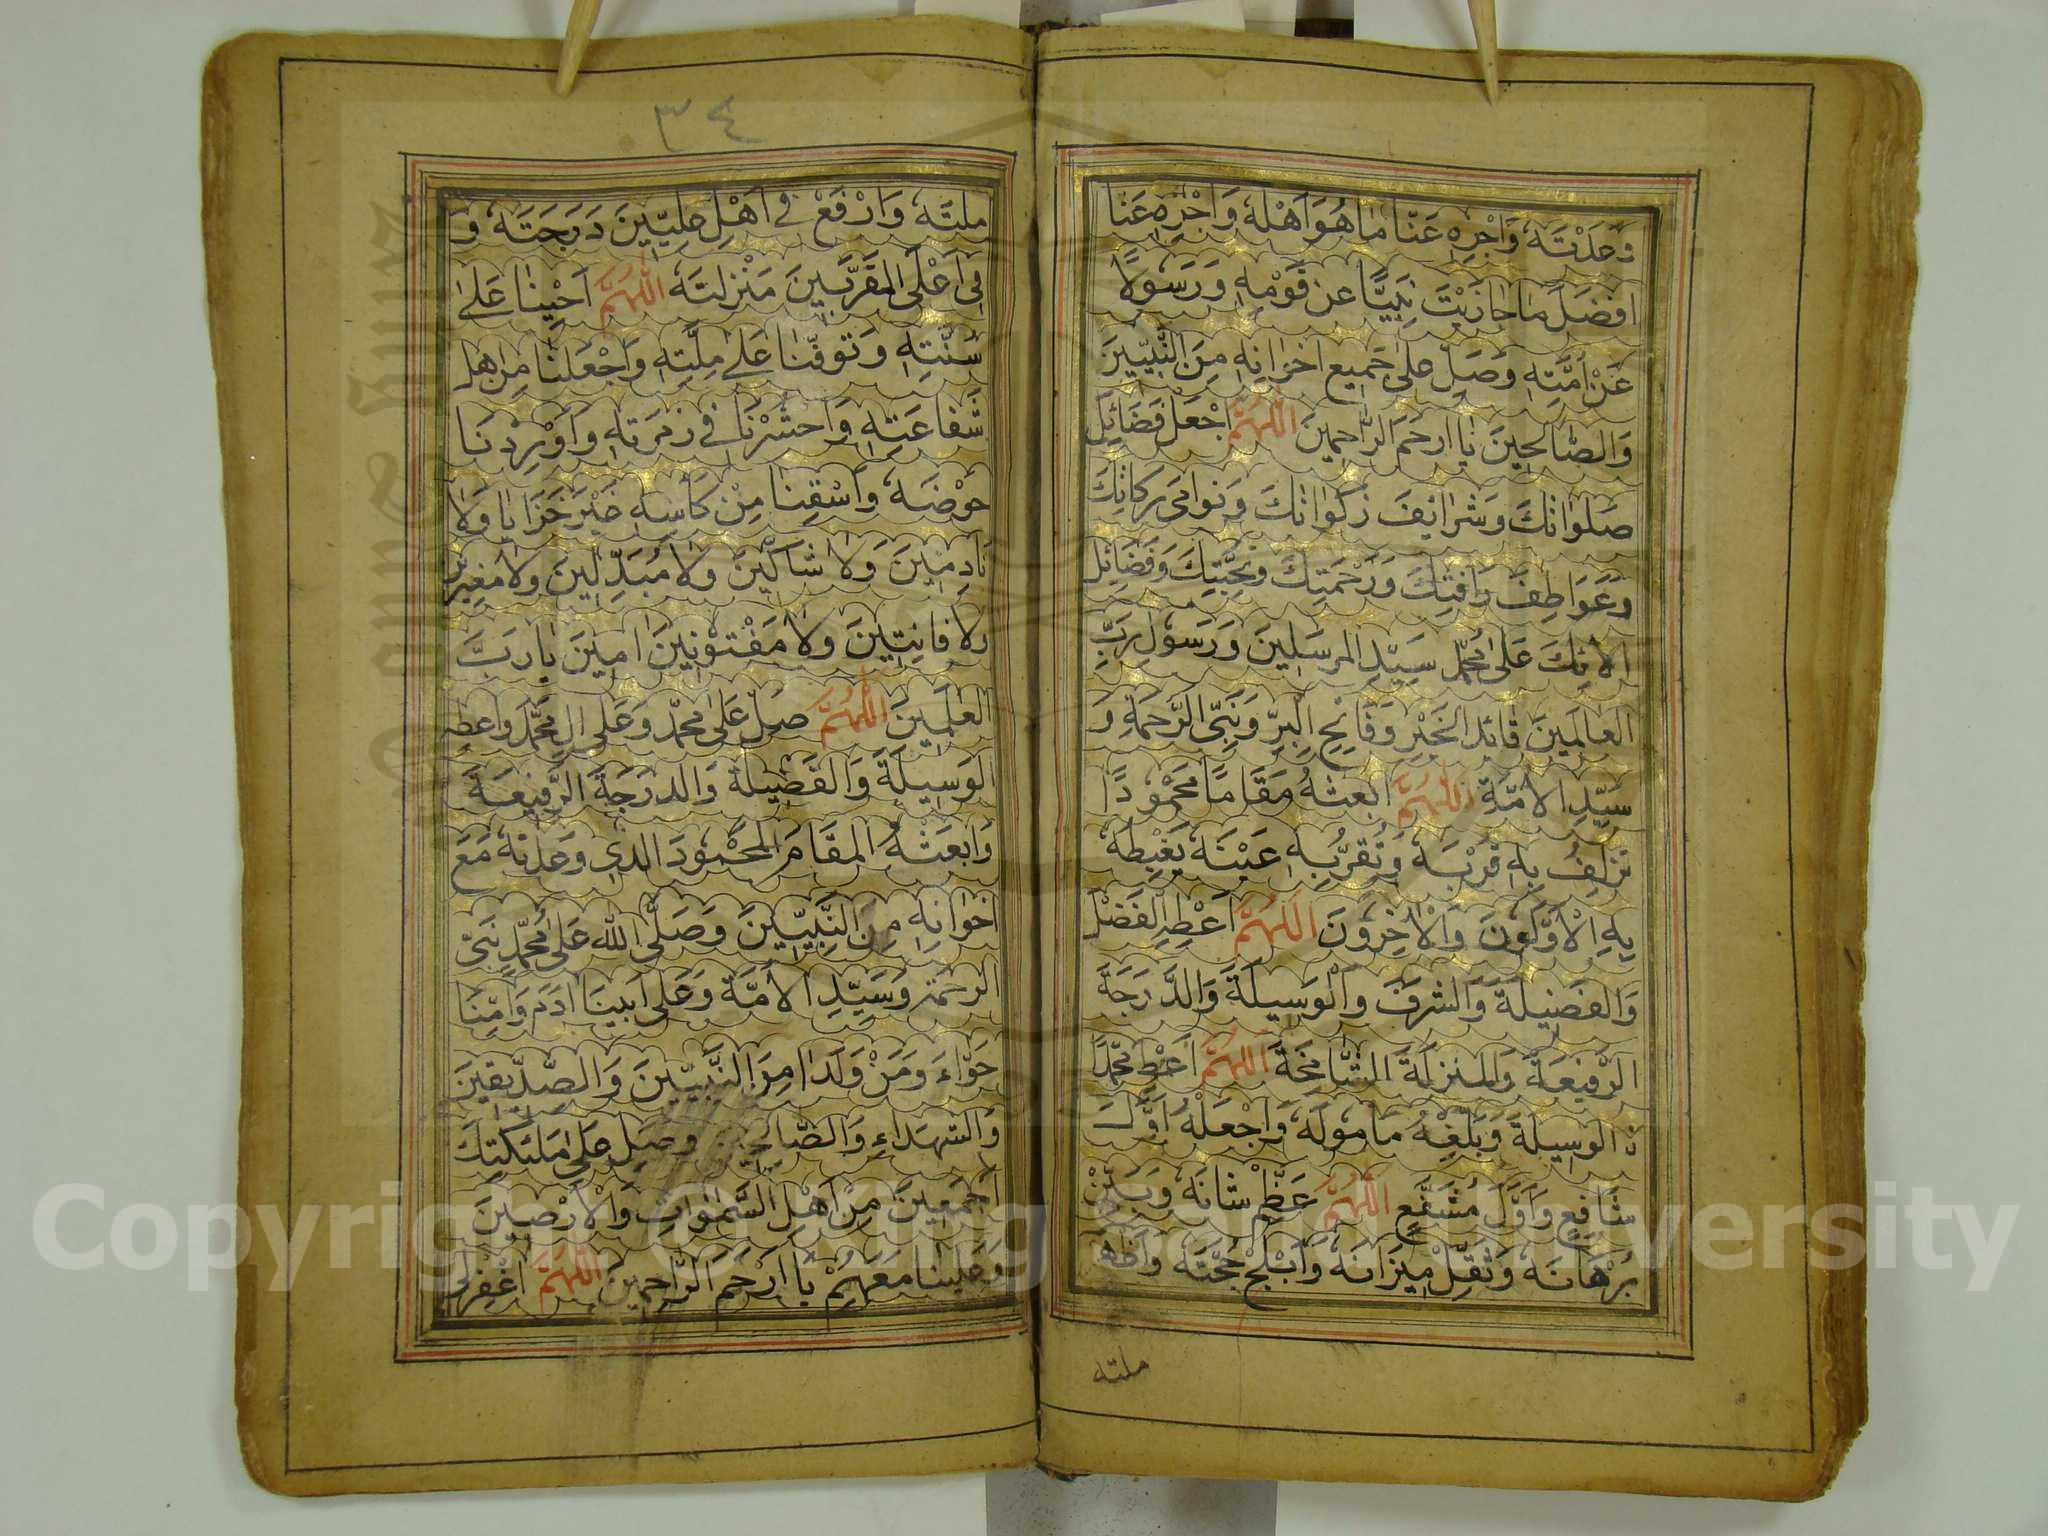 وَعَدْتَهُ وَاجْزِهِ عَنَّا مَا هُوَ اَهْلُهُ وَاجْزِهِ عَنَّا
افضَلَ مَا جَازَيْتَ نَبِيًّا عن قَوْمِهِ وَرَسُولًا
عَنْ اُمَّتِهِ وَصَلِّ عَلَى جَمِيعِ اخوَانِهِ مِنَ النَّبِيّينَ
وَالصَّالِحِينَ يَا ارحَمَ الرَّاحِمِينَ اللّٰهُمَّ اجْعَلْ فَضَائِلَ
صَلَوَاتِكَ وَشَرَائِفَ زَكَوَاتِكَ وَنَوَامِىَ بَرَكَاتِكَ
وَعَوَاطِفَ رَافَتِكَ وَرَحْمَتِكَ وَتَحِيَّتِكَ وَفَضَائِلَ
الائِكَ عَلَى مُحَمَّدٍ سَيِّدِ المُرسَلِينَ وَرَسُولِ رَبِّ
العَالَمِينَ قَائِدِ الخَيْرِ وَفَاتِحِ البِرِّ وَنَبِىِّ الرَّحمَةِ وَ
سَيِّدِ الاُمَّةِ اللّٰهُمَّ ابعَثهُ مَقَامًا مَحْمُودًا
تُزْلِفُ بِهِ قُرْبَهُ وَتُقِرُّ بِهِ عَيْنَهُ يَغْبِطُهُ
بِهِ الْاَوَّلُونَ وَالْاٰخِرُونَ اللّٰهُمَّ اَعْطِهِ الْفَضْلَ
وَالفَضِيلَةَ وَالشَّرَفَ وَالْوَسِيلَةَ وَالدَّرَجَةَ
الرَّفِيعَةَ وَالمنزِلَةَ الشَّامِخَةَ اللّٰهُمَّ اَعْطِ مُحَمَّدًا
الوَسِيلَةَ وَبَلِّغْهُ مَأمُولَهُ وَاجْعَلْهُ اَوَّلَ
شَافِعٍ وَاَوَّلَ مُشَفَّعٍ اللّٰهُمَّ عَظِّم شَانَهُ وَبَيِّنْ
بُرْهَانَهُ وَثَقِّلْ مِيزَانَهُ وَاَبْلِجْ حُجَّتَهُ وَ
ملته
٣٤
ملتَهُ وَارْفَعْ فِى اَهْلِ عِلِيِّينَ دَرَجَتَهُ وَ
فِى اَعْلَى المُقَرَّبِينَ مَنْزِلتَهُ اللّٰهُمَّ اَحْيِنَا عَلَى
سُنَّتِهِ وَتَوَفَّنَا عَلَى مِلَّتِهِ وَاجْعَلْنَا مِن اهلِ
شَفَاعَتِهِ وَاحشُرْنَا فِى زمرَتِهِ وَاَوْرِدْنَا
حَوْضَهُ وَاَسْقِنَا مِنْ كَأسِهِ غَيْرَ خَزَايَا وَلَا
نَادِمِينَ وَلَا شَاكِّينَ وَلَا مُبَدِّلِينَ وَلَا مغيرين
ولا فَاتِنِينَ وَلَا مَفْتُونِينَ امِينَ يَا رَبَّ
العٰلَمِينَ اللّٰهُمَّ صَلِّ عَلَى مُحَمَّدٍ وَعَلَى الِ مُحَمَّدٍ وَاَعطِهِ
الوَسِيلَةَ وَالفَضِيلَةَ وَالدرَجَةَ الرَّفِيعَةَ
وَابعَثْهُ المَقَامَ المَحْمُودَ الذِى وَعَدتَهُ مَعَ
اخوَانِهِ مِنَ النَّبِيِّينَ وَصَلَّى اللّٰه عَلَى مُحَمَّدٍ نَبِىِّ
الرحمَةِ وَسَيِّدِ الاُمَّةِ وَعَلَى اَبِينَا ادَمَ وَاُمِّنَا
حَوَّاءَ وَمَنْ وَلَدَا مِنَ النَّبِيِّينَ وَالصِّدِّيقِينَ
وَالشهَدَاءِ وَالصَّالِحِينَ وَصَلِّ عَلَى مَلٰئِكَتِكَ
اَجْمَعِينَ مِنْ اَهْلِ السَّمٰوَاتِ وَالْاَرَضِينَ
وَعَلَيْنَا مَعَهُمْ يَا اَرْحَمَ الرَّاحِمِينَ اللّٰهُمَّ اغْفِرْ لِى
Copyright © King Saud University